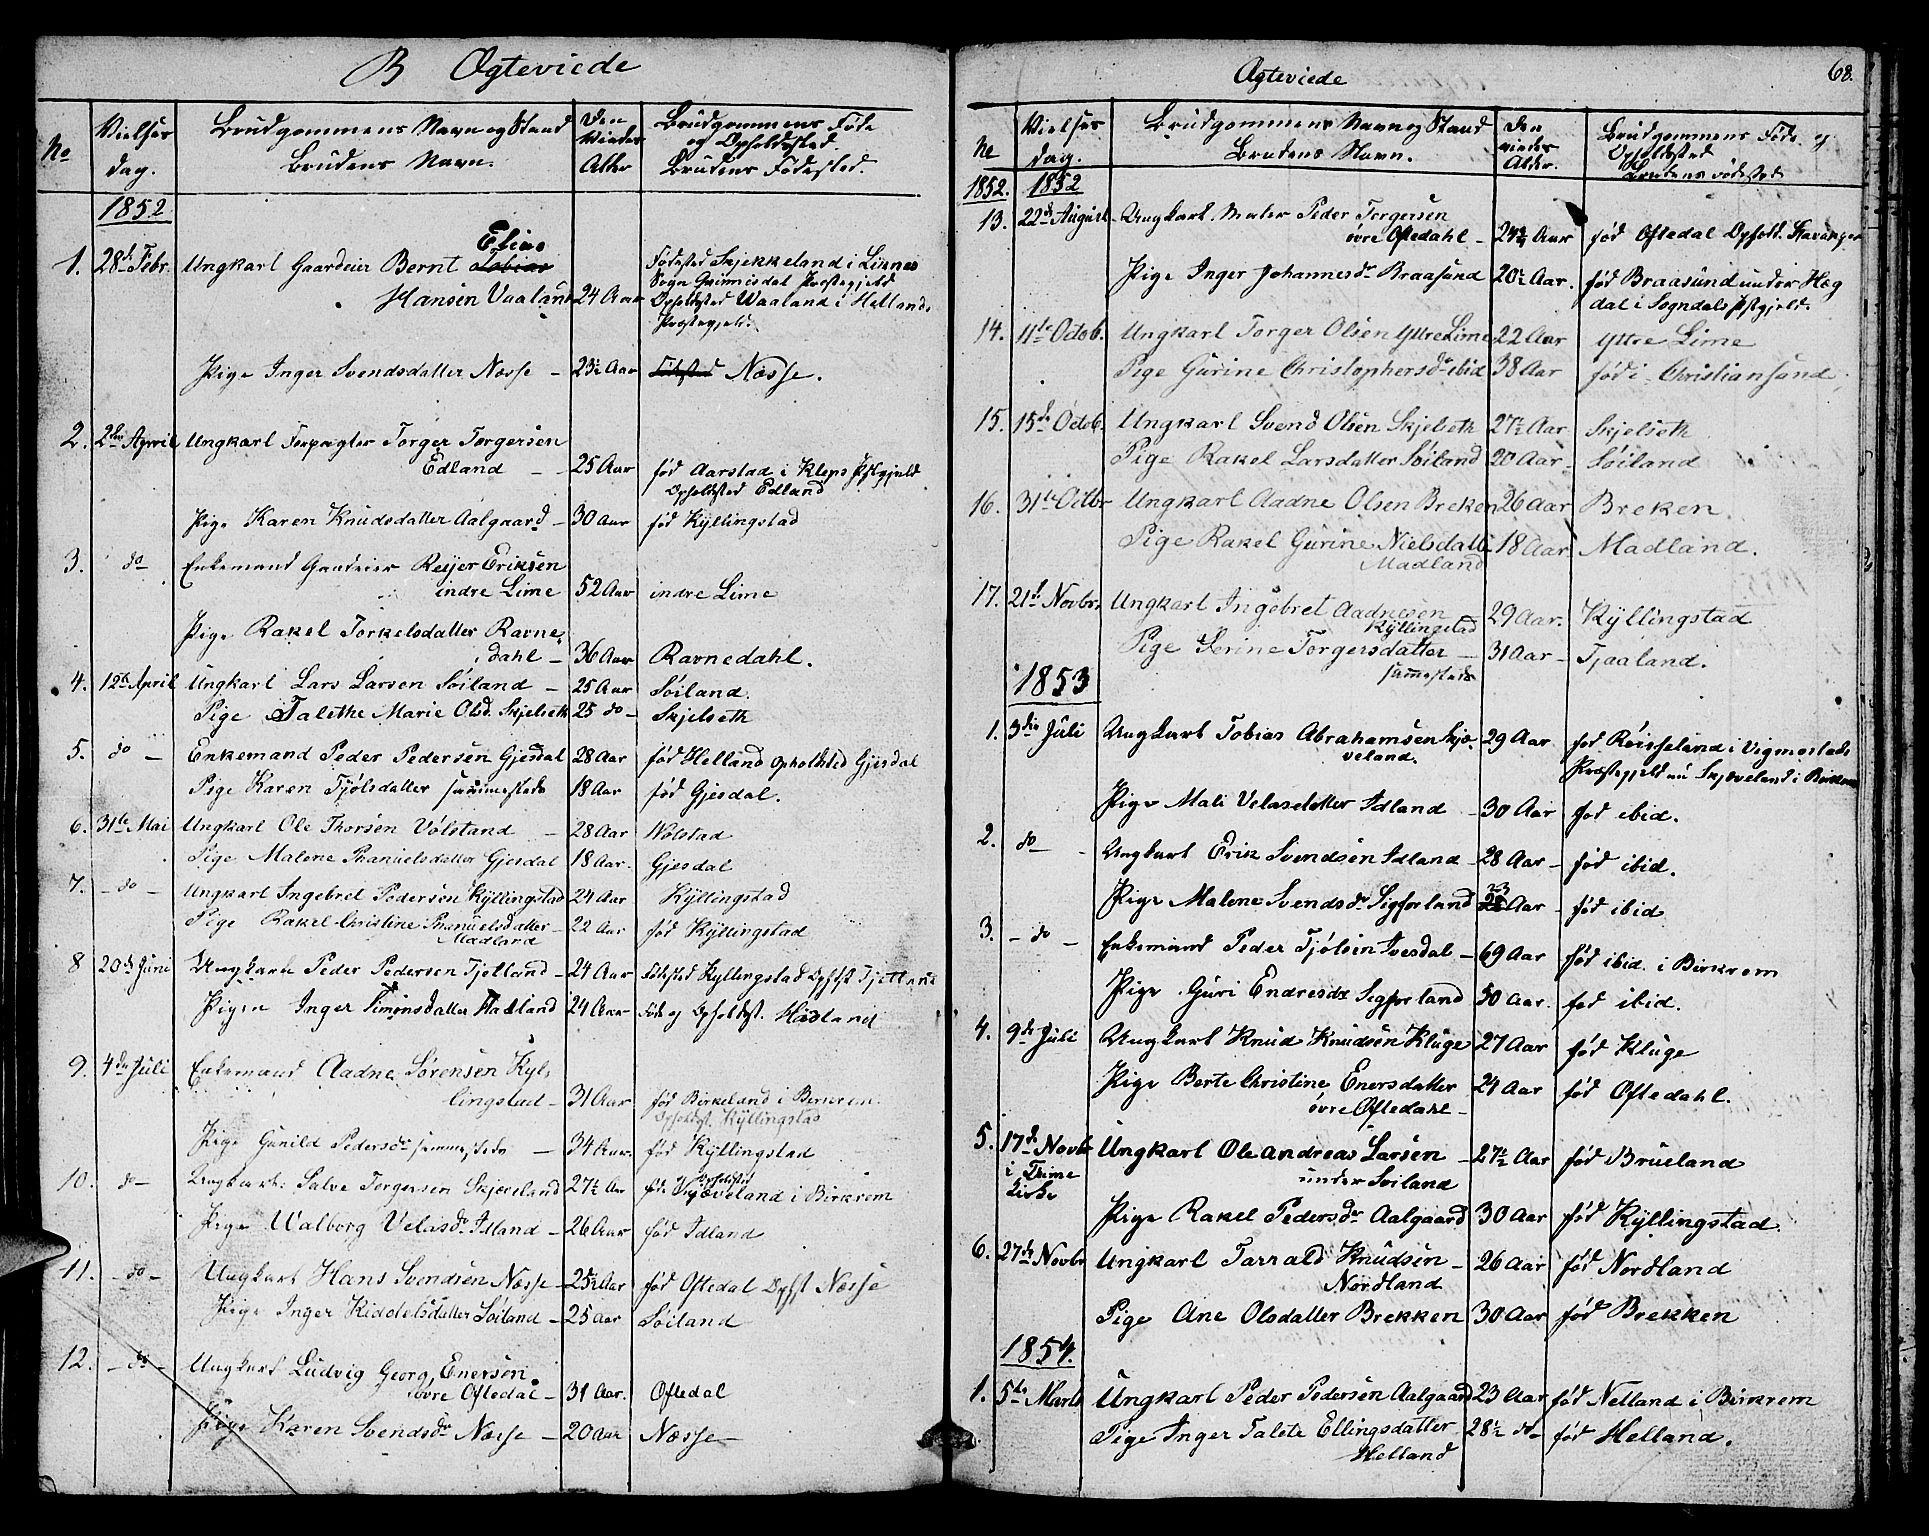 B Ægteviede
No
Vielses dag.
Brudgommens Navn og Stand
Brudens Navn.
Den Viedes Alder
Brudgommens Føde og Opholdssted
Brudens Fødested.
1852
1. 28de Febr. Ungkarl Gaardeier Bernt Tobias Elias
Hansen Vaaland 24 Aar
Fødested Skjekkeland i
Sogn Præstegjeld
Opholdssted Waaland i Hetland
Præstegjeld.
Pige Inger Svendsdatter Næsse - 23½ Aar Fødested Næsse.
2. 2den April Ungkarl Forpagter Torger Torgersen
Edland - 25 Aar født Aarstad i Klep Pstgjeld
Opholdssted Edland
Pige Karen Knudsdatter Aalgaard - 30 Aar fød Kyllingstad
3. do Enkemand Gaardeier Reijer Eriksen
indre Lime 52 Aar indre Lime
Pige Rakel Torkelsdatter Ravne-
dahl - 36 Aar Ravnedahl.
4. 12te April Ungkarl Lars Larsen Søiland - 25 Aar Søiland.
Pige Talethe Marie Olsd. Skjelseth 25 do - Skjelseth
5. do - Enkemand Peder Pedersen Gjesdal 28 Aar fød Helland Opholdsted Gjesdal
Pige Karen Tjølsdatter sammesteds 18 Aar fød Gjesdal.
6. 31te Mai Ungkarl Ole Thorsen Vølstand - 28 Aar Wølstad
Pige Malene Phanuelsdatter Gjesdal 18 Aar. Gjesdal
7. - do - Ungkarl Ingebret Pedersen Kyllingstad 24 Aar Kyllingstad
Pige Rakel Christine Phanuelsdatter - 22 Aar fød Kyllingstad
Madland
8 20de Juni Ungkarl Peder Pedersen Tjetland - 24 Aar Fødested Kyllingstad Ophst Tjetland
Pigen Inger Simonsdatter Madland 24 Aar Føde og Opholdsst. Madland
9. 4de Juli Enkemand Aadne Sørensen Kyl-
lingstad - 31 Aar fød Birkeland i Birkrem
Opholdsst. Kyllingstad
Pige Gunild Pedersdr sammesteds - 34 Aar. fød Kyllingstad
10. do - Ungkarl Salve Torgersen Skjæveland 27½ Aar fød Opholdsted Skjæveland i Birkrem
Pige Walborg Velasdr Idland - 26 Aar fød Idland
11. - do - Ungkarl Hans Svendsen Næsse - 25½ Aar fød Oftedal Ophst Næsse
Pige Inger Kiddelsdatter Søiland - 25 Aar Søiland
12. - do - Ungkarl Ludvig Georg Enersen
øvre Oftedal - 31 Aar. Oftedal
Pige Karen Svendsdr Næsse - 20 Aar Næsse -
Ægteviede
68.
No
Vielses dag.
Brudgommens Navn og Stand
Brudens Navn.
Den viedes Alder.
Brudgommens Føde og
Opholdssted
Brudens Fødested
1852. 1852
13. 22de August Ungkarl. Maler Peder Torgersen
øvre Oftedahl - 24½ Aar fød Oftedal Ophold. Stavanger
Pige Inger Johannesdr Braasund 20½ Aar. fød Braasund under Hæg
dal i Sogndals Pstgjeld.
14. 11te Octob. Ungkarl Torger Olsen Yttre Lime 22 Aar Yttre Lime
Pige Gurine Christophersdr ibid 38 Aar fød i Christiansund
15. 15de Octob. Ungkarl Svend Olsen Skjelseth 27½ Aar Skjelseth
Pige Rakel Larsdatter Søiland 20 Aar - Søiland
16. 31te Octbr Ungkarl Aadne Olsen Breken 26 Aar Breken.
Pige Rakel Gurine Nielsdatt. 18 Aar Madland.
Madland
17. 21de Novbr. Ungkarl Ingebret Aadnesen - 29 Aar. Kyllingstad
Kyllingstad
Pige Serine Torgersdatter - 31 Aar - Tjaaland.
sammesteds
1853
1. 3die Juli Ungkarl Tobias Abrahamsen Skjæ- 29 Aar fød Røisseland i Vigmostads
veland. Præstegjeld nu Skjæveland i Birkrem
Pige Mali Velasdatter Idland - 30 Aar fød ibid.
2. do - Ungkarl Erik Svendsen Idland - 28 Aar - fød ibid.
Pige Malene Svendsdr Sigforland 23 Aar - fød ibid
3. - do - Enkemand Peder Tjølsen Ivesdal - 69 Aar fød ibid. i Birkrem
Pige Guri Endresdr Segforland 50 Aar. fød ibid.
4. 9de Juli Ungkarl Knud Knudsen Kluge 27 Aar fød Kluge
Pige Berte Christine Enersdatter 24 Aar fød Oftedahl.
øvre Oftedahl -
5. 17de Novbr Ungkarl Ole Andreas Larsen - 27½ Aar fød Brueland
i Thime Kirke under Soiland
Pige Rakel Pedersdr Aalgaard 30 Aar fød Kyllingstad
6. 27de Novbr Ungkarl Tarrald Knudsen - 26 Aar fød Nordland
Nordland
Pige Ane Olsdatter Brekken 30 Aar fød Brekken
1854.
1. 5te Marts Ungkarl Peder Pedersen Aalgaard 23 Aar fød Netland i Birkrem
Pige Inger Talete Ellingsdatter 28½ do fød Helland.
Helland